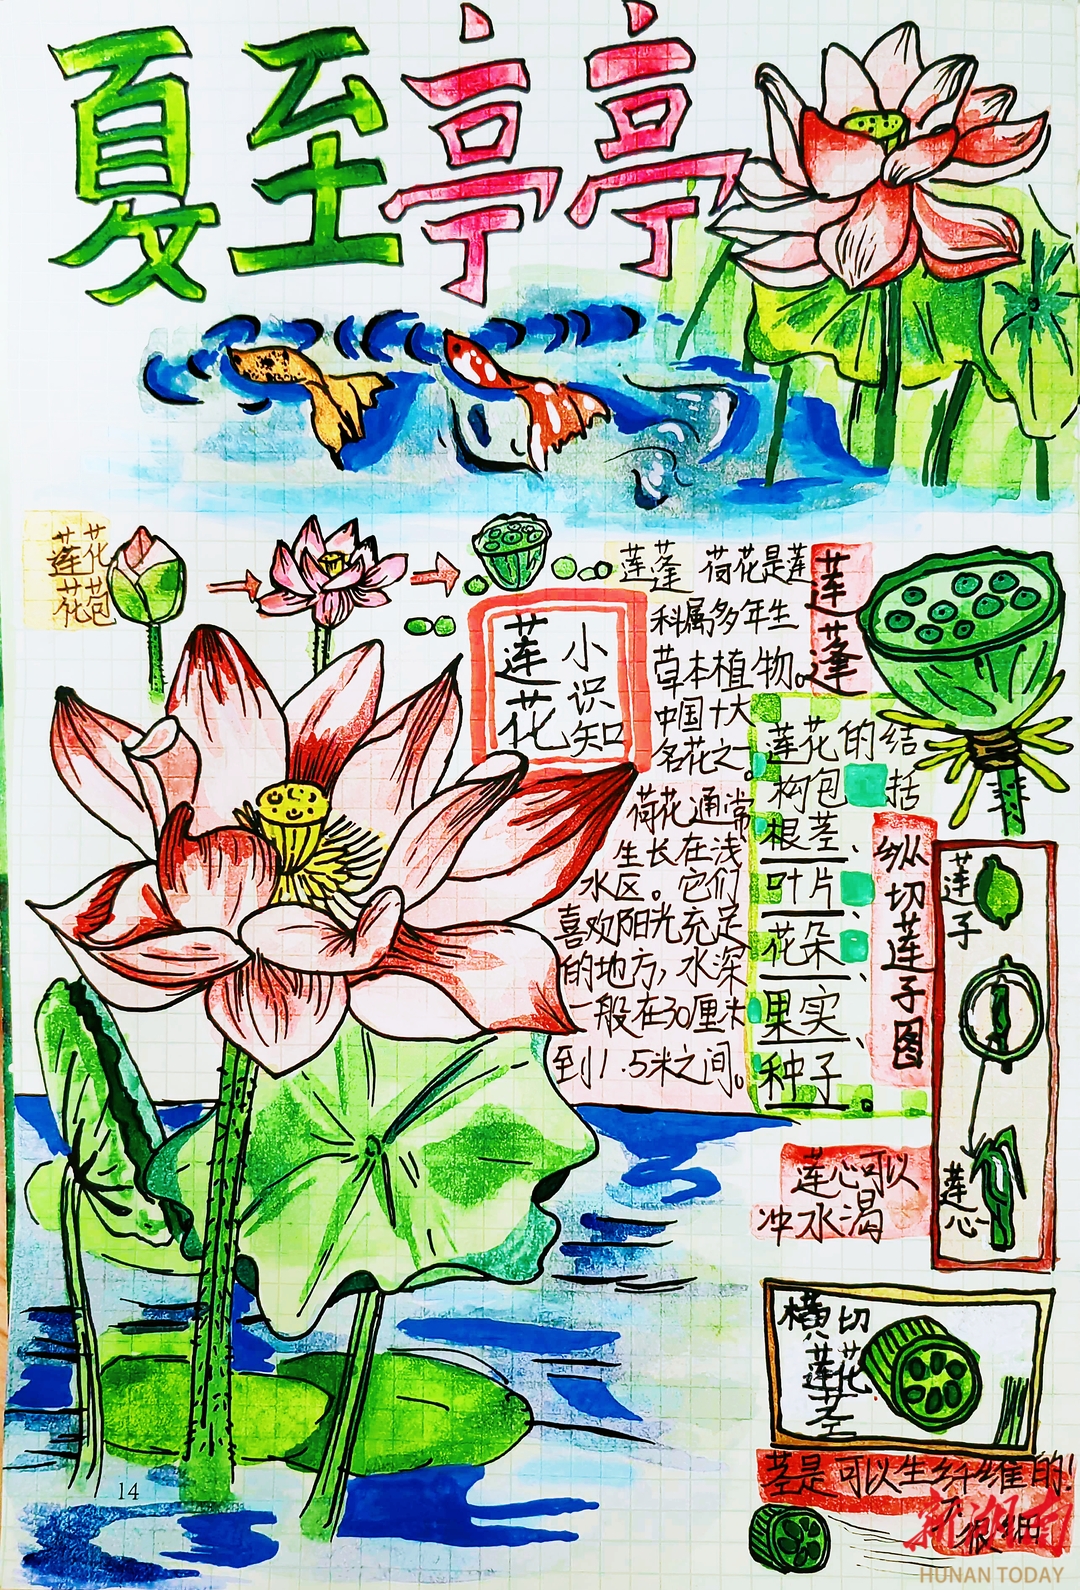 夏至亭亭
莲花
花苞
莲蓬
莲花
小识知
荷花是莲
科属多年生
草本植物。
中国十大
名花之一。
荷花通常
生长在浅
水区。它们
喜欢阳光充足
的地方，水深
一般在30厘米
到1.5米之间。
莲蓬
莲花的结
构包括
根茎、
叶片、
花朵、
果实、
种子。
纵切莲子图
莲子
莲心
莲心可以
冲水渴
横切
莲花
茎
茎是可以生纤维的!
很细
14
新湖南
HUNAN TODAY